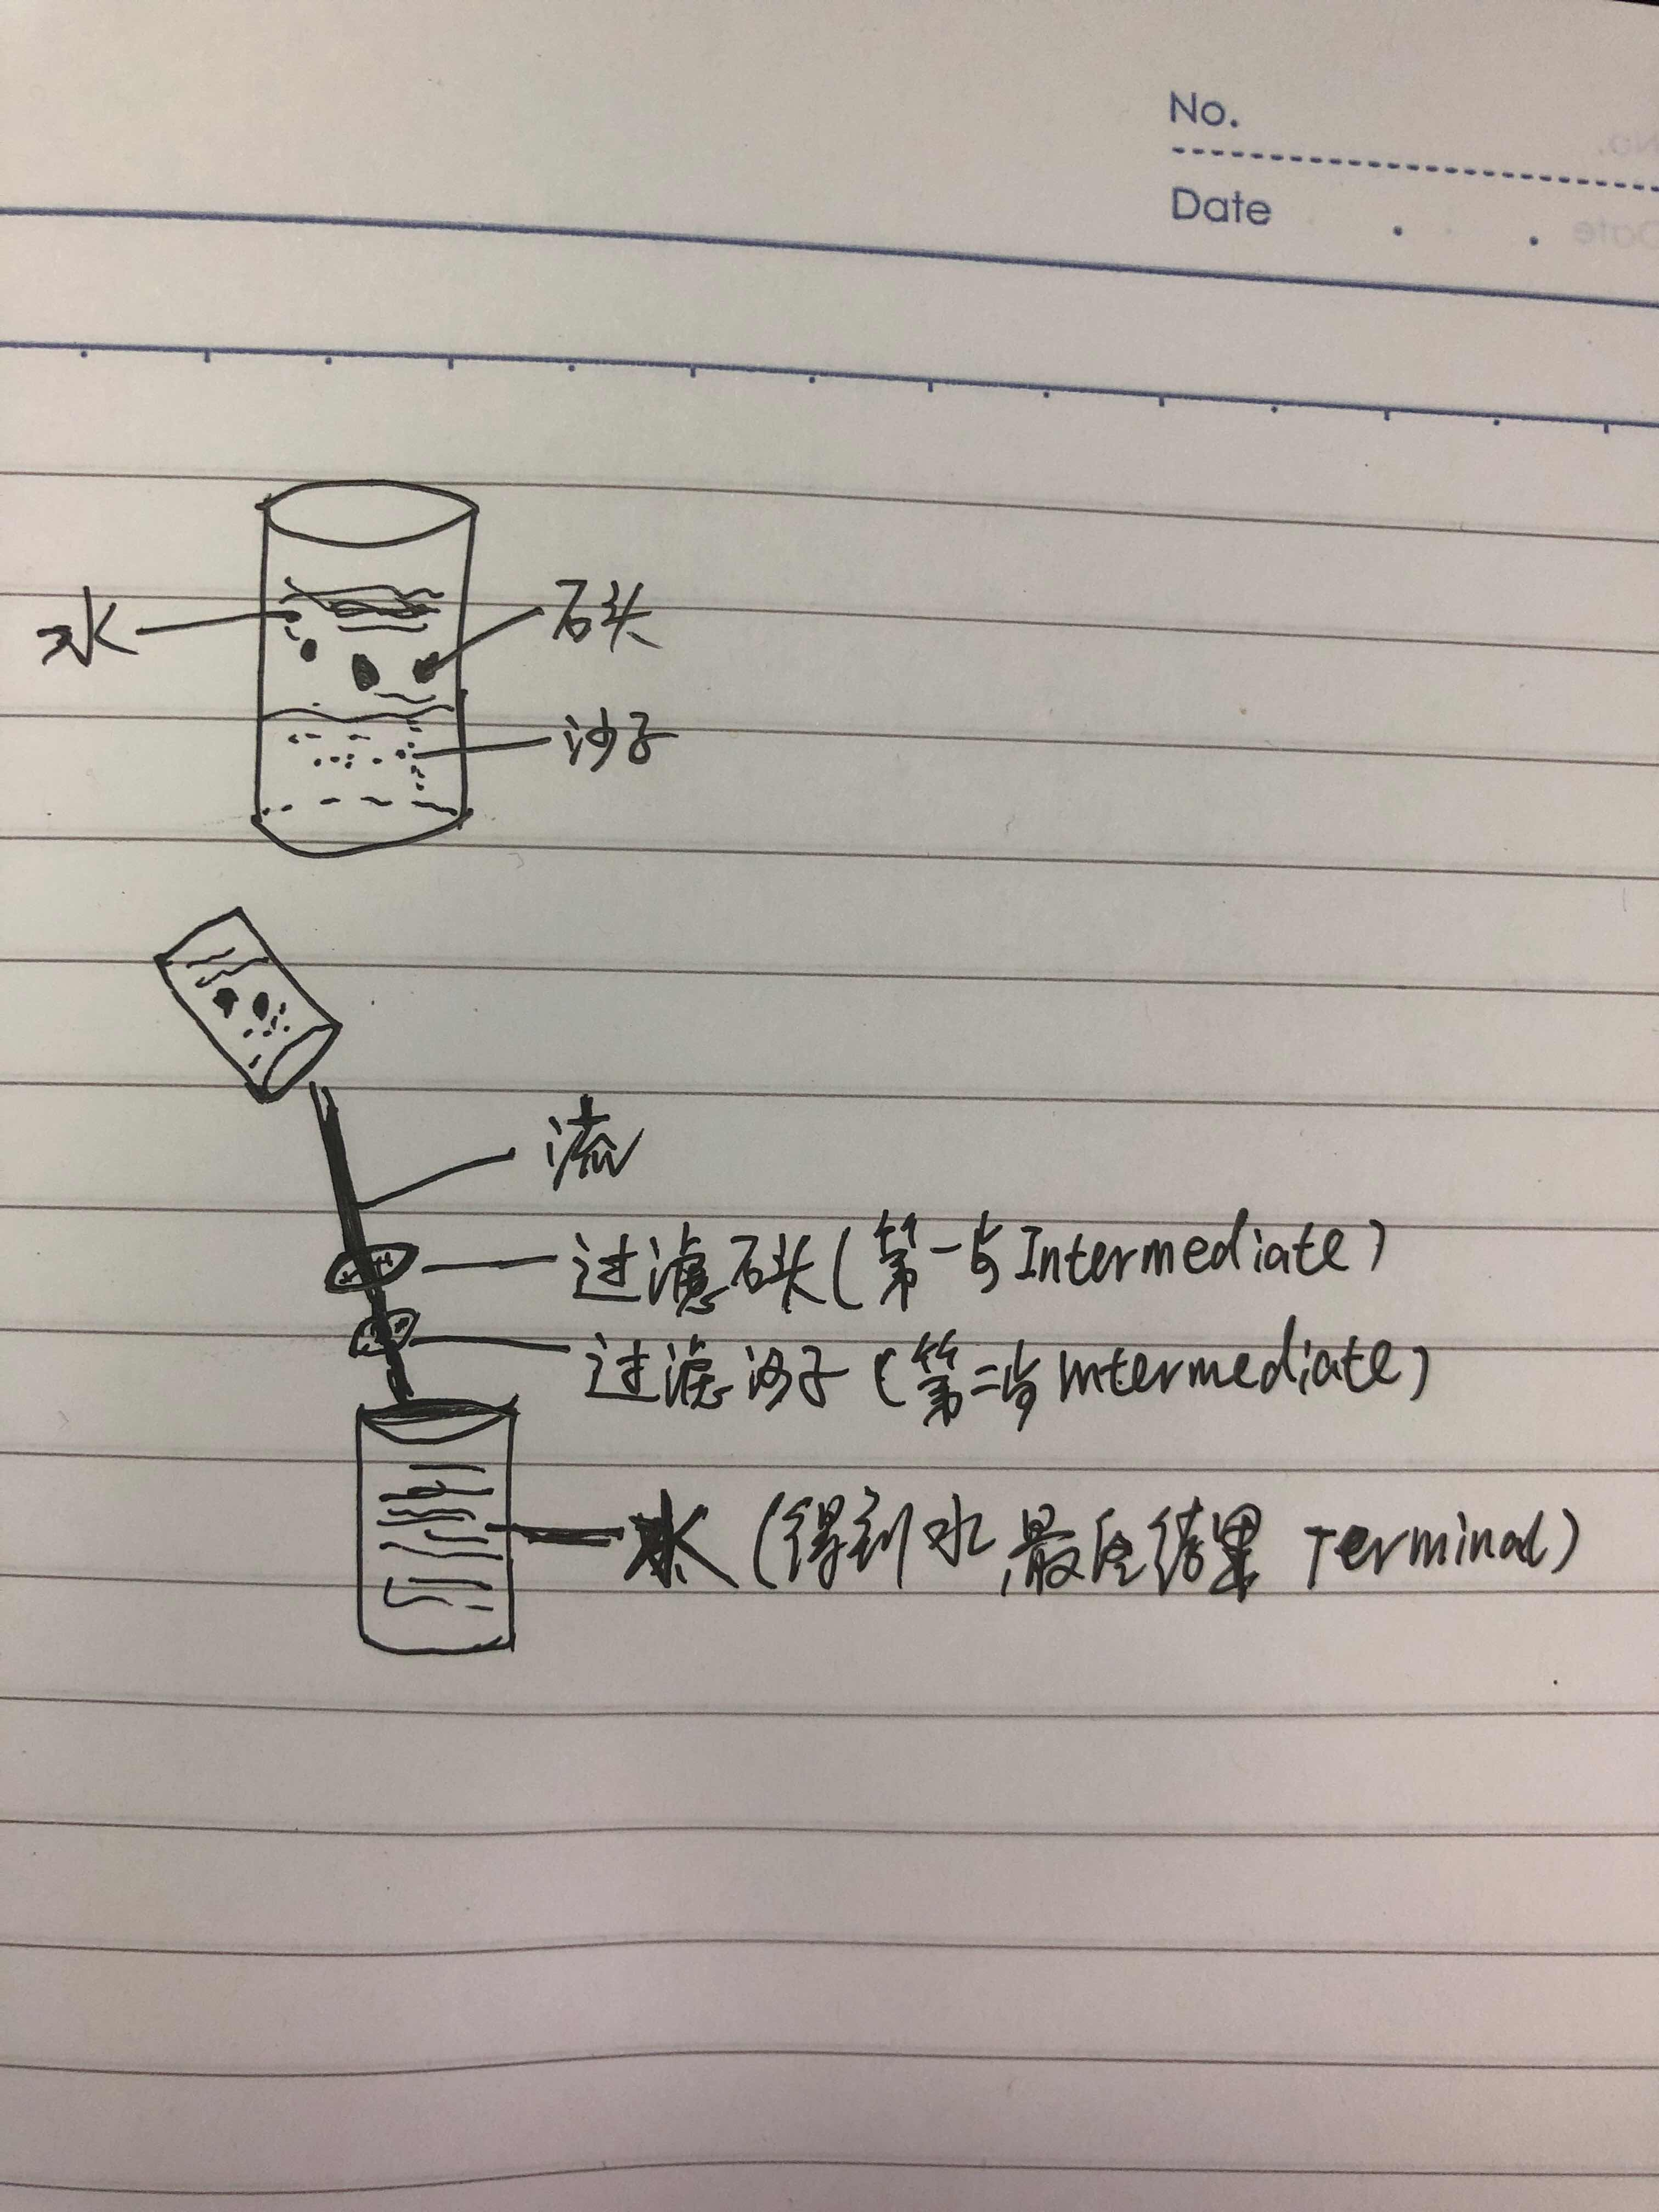 No.
Date
水
石头
沙子
流
过滤石头(第一步Intermediate)
过滤沙子(第二步Intermediate)
水(得到水,最后结果 Terminal)